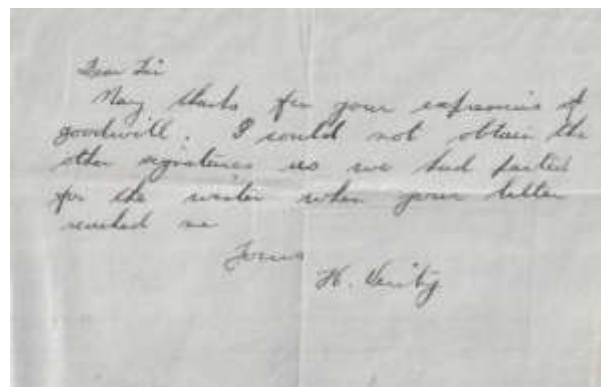 Dear Sir
Many thanks for your expressions of
goodwill. I could not obtain the
other signatures as we had parted
for the winter when your letter
reached me
Yours
H. Verity